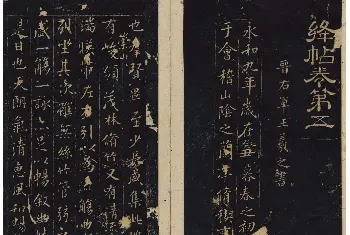 絳帖卷第五
晉右軍王羲之書
永和九年歲在癸丑暮春之初
于會稽山陰之蘭亭脩禊
也羣賢畢至少長咸集此地
有崇山峻領茂林脩竹又有清
湍暎帶左右引以為觴曲
列坐其次雖無絲竹管弦
盛一觴一詠亦足以暢敘幽
是日也天朗氣清惠風和暢